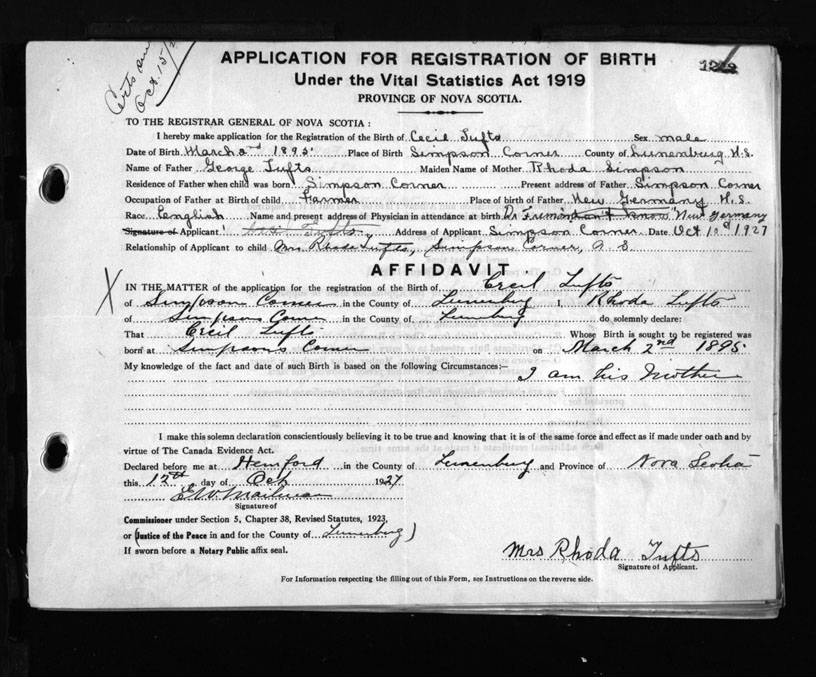 Certs
Oct. 15/2
APPLICATION FOR REGISTRATION OF BIRTH
Under the Vital Statistics Act 1919
PROVINCE OF NOVA SCOTIA.
TO THE REGISTRAR GENERAL OF NOVA SCOTIA :
I hereby make application for the Registration of the Birth of Cecil Tufts Sex male
Date of Birth March 2nd 1895 Place of Birth Simpson Corner County of Lunenburg N.S.
Name of Father George Tufts Maiden Name of Mother Rhoda Simpson
Residence of Father when child was born Simpson Corner Present address of Father Simpson Corner
Occupation of Father at Birth of child Farmer Place of birth of Father New Germany N.S.
Race English Name and present address of Physician in attendance at birth Dr New Germany
Signature of Applicant Tufts Address of Applicant Simpson Corner Date Oct 10d 1927
Relationship of Applicant to child Mrs Rhoda Tufts, Simpson Corner, N S
AFFIDAVIT
IN THE MATTER of the application for the registration of the Birth of Cecil Tufts
of Simpson Corner in the County of Lunenburg I, Rhoda Tufts
of Simpsons Corner in the County of Lunenburg do solemnly declare:
That Cecil Tufts Whose Birth is sought to be registered was
born at Simpsons Corner on March 2nd 1895
My knowledge of the fact and date of such Birth is based on the following Circumstances:—
I am his Mother
I make this solemn declaration conscientiously believing it to be true and knowing that it is of the same force and effect as if made under oath and by
virtue of The Canada Evidence Act.
Declared before me at Hemford in the County of Lunenburg and Province of Nova Scotia
this 12th day of Oct 1927
E W Mailman
Signature of
Commissioner under Section 5, Chapter 38, Revised Statutes, 1923,
or (Justice of the Peace in and for the County of Lunenburg)
If sworn before a Notary Public affix seal.
Mrs Rhoda Tufts
Signature of Applicant.
For Information respecting the filling out of this Form, see Instructions on the reverse side.